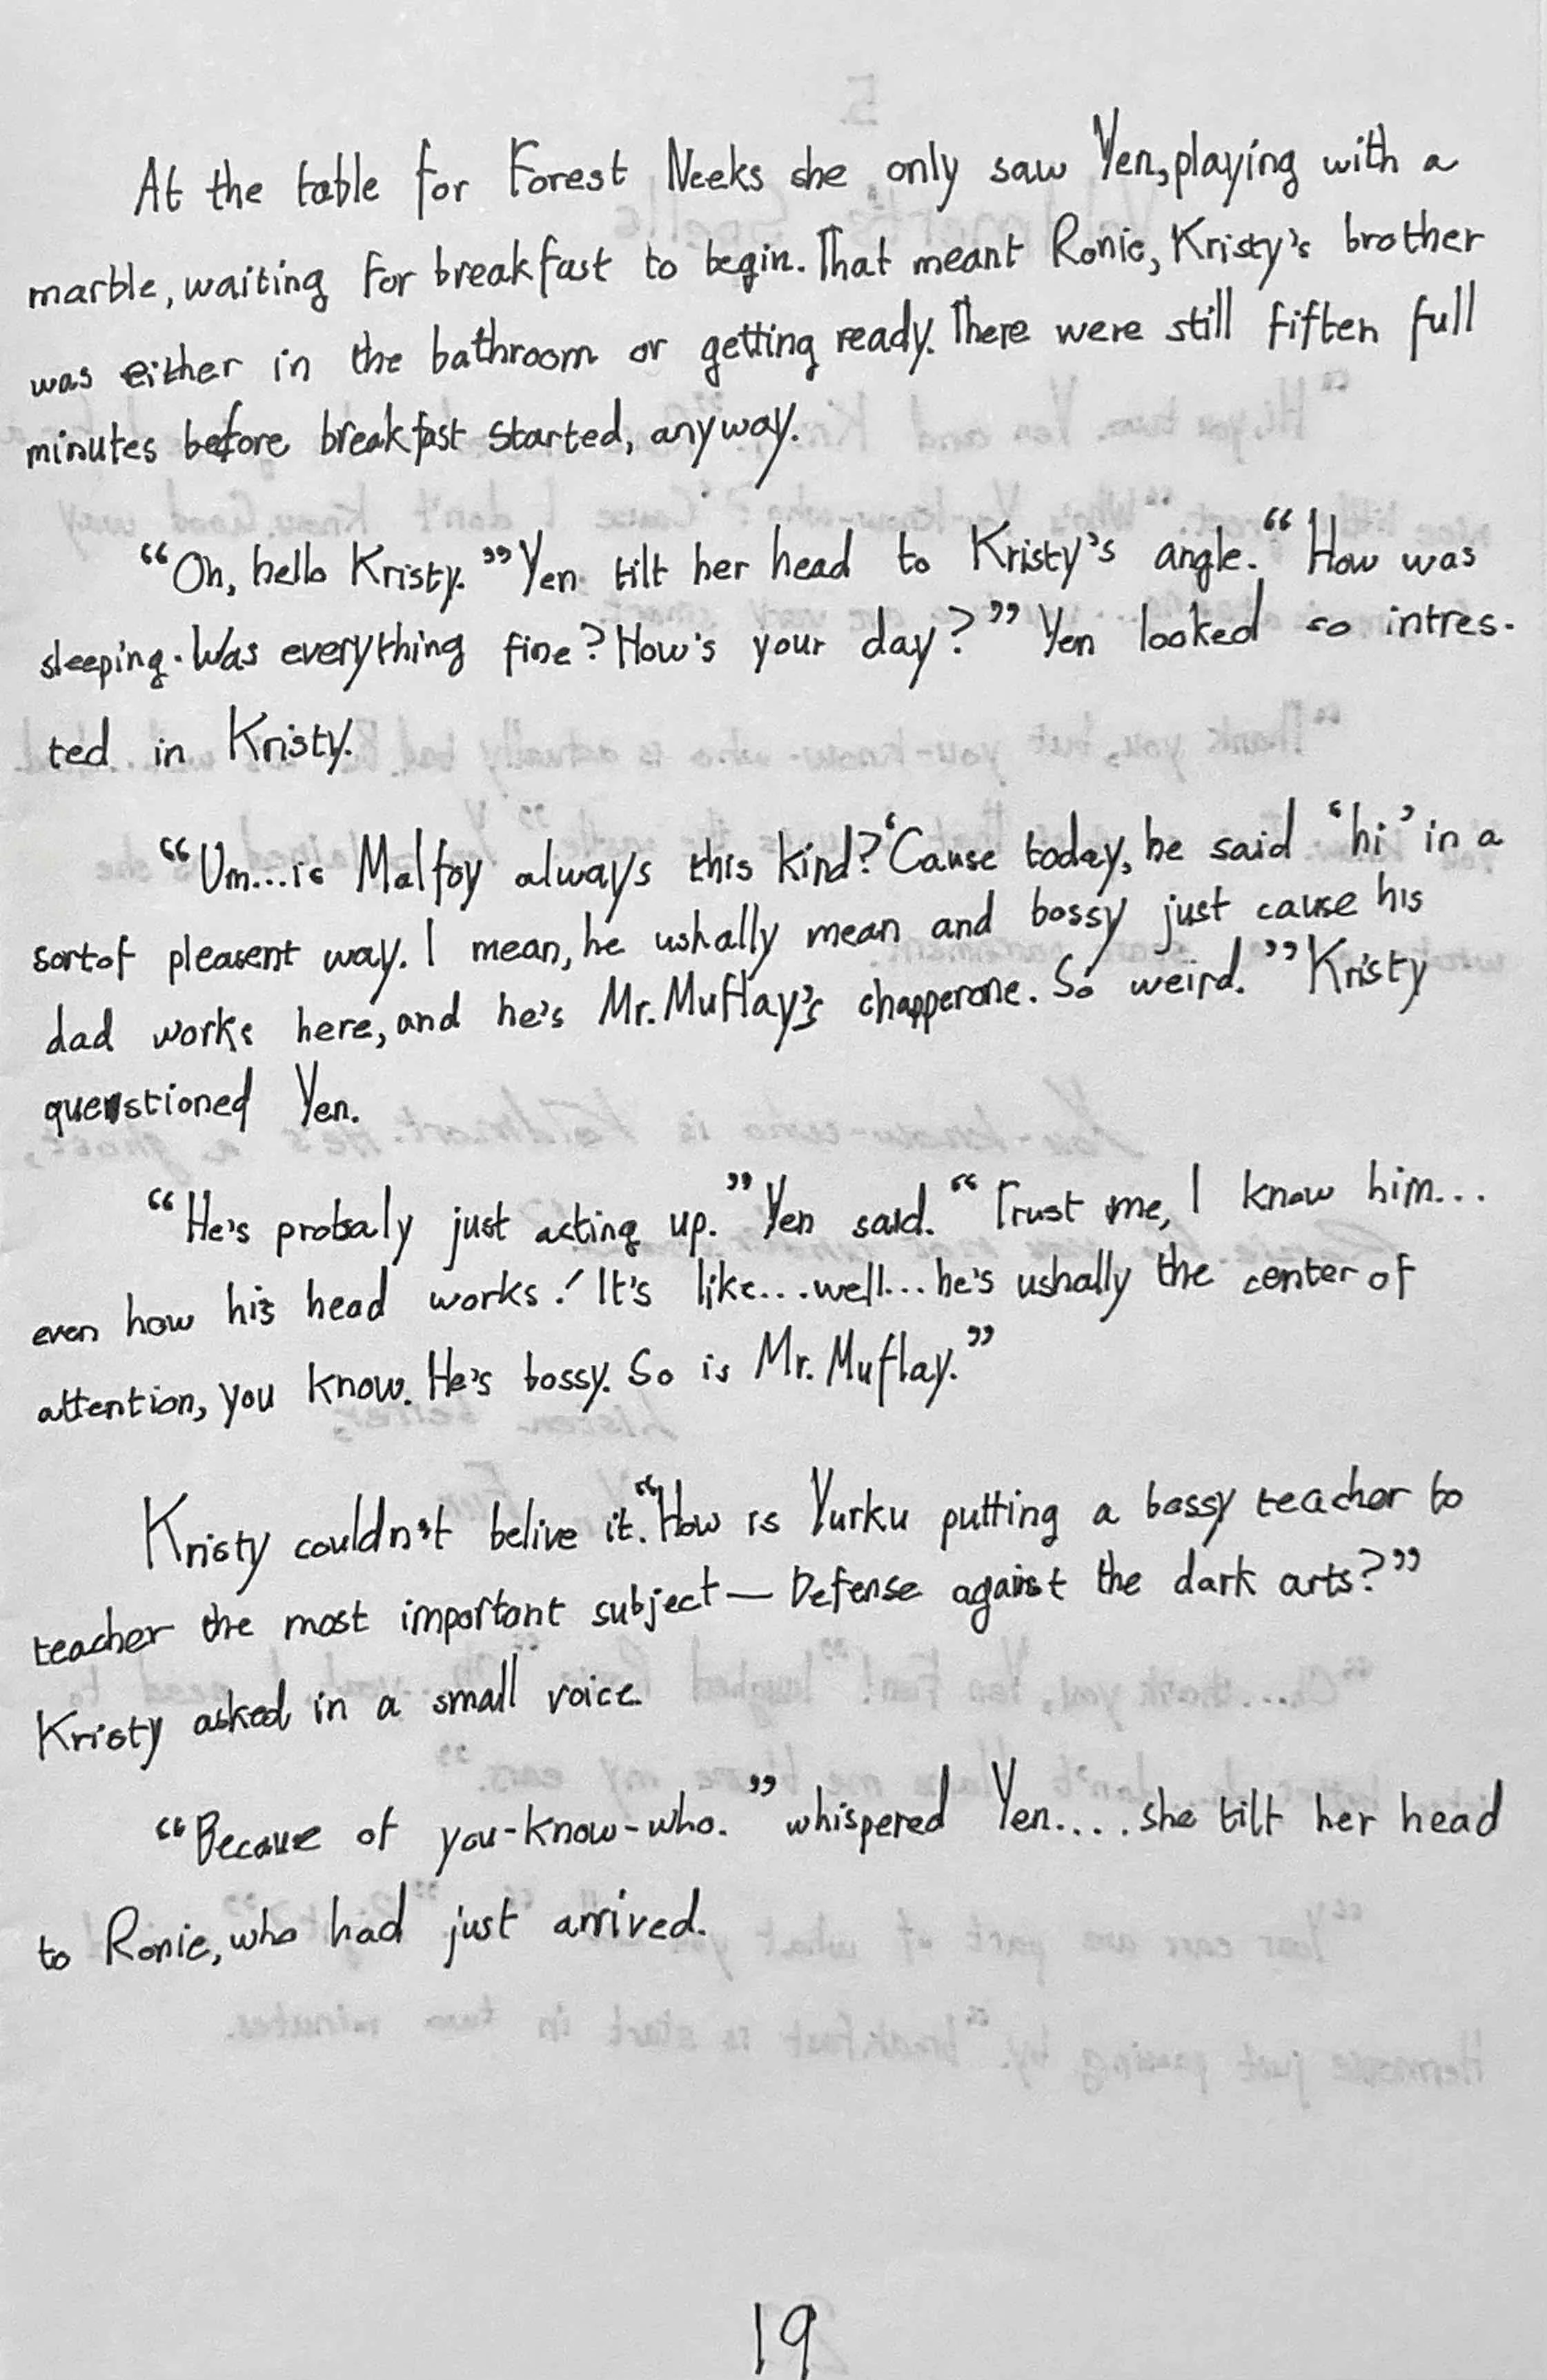 At the table for Forest Neeks she only saw Yen, playing with a
marble, waiting for breakfast to begin. That meant Ronie, Kristy's brother
was either in the bathroom or getting ready. There were still fiften full
minutes before breakfast started, anyway.
“Oh, hello Kristy.” Yen tilt her head to Kristy's angle. “How was
sleeping. Was everything fine? How's your day?” Yen looked so intres-
ted in Kristy.
“Um...is Malfoy always this kind? ‘Cause today, he said ‘hi’ in a
sortof pleasent way. I mean, he ushally mean and bossy just cause his
dad works here, and he's Mr. Muflay's chapperone. So weird.” Kristy
questioned Yen.
“He's probaly just acting up.” Yen said. “Trust me, I know him...
even how his head works! It's like...well...he's ushally the center of
attention, you know. He's bossy. So is Mr. Muflay.”
Kristy couldn't belive it. “How is Yurku putting a bossy teacher to
teacher the most important subject — Defense against the dark arts?”
Kristy asked in a small voice.
“Becaue of you-know-who.” whispered Yen.... she tilt her head
to Ronie, who had just arrived.
19